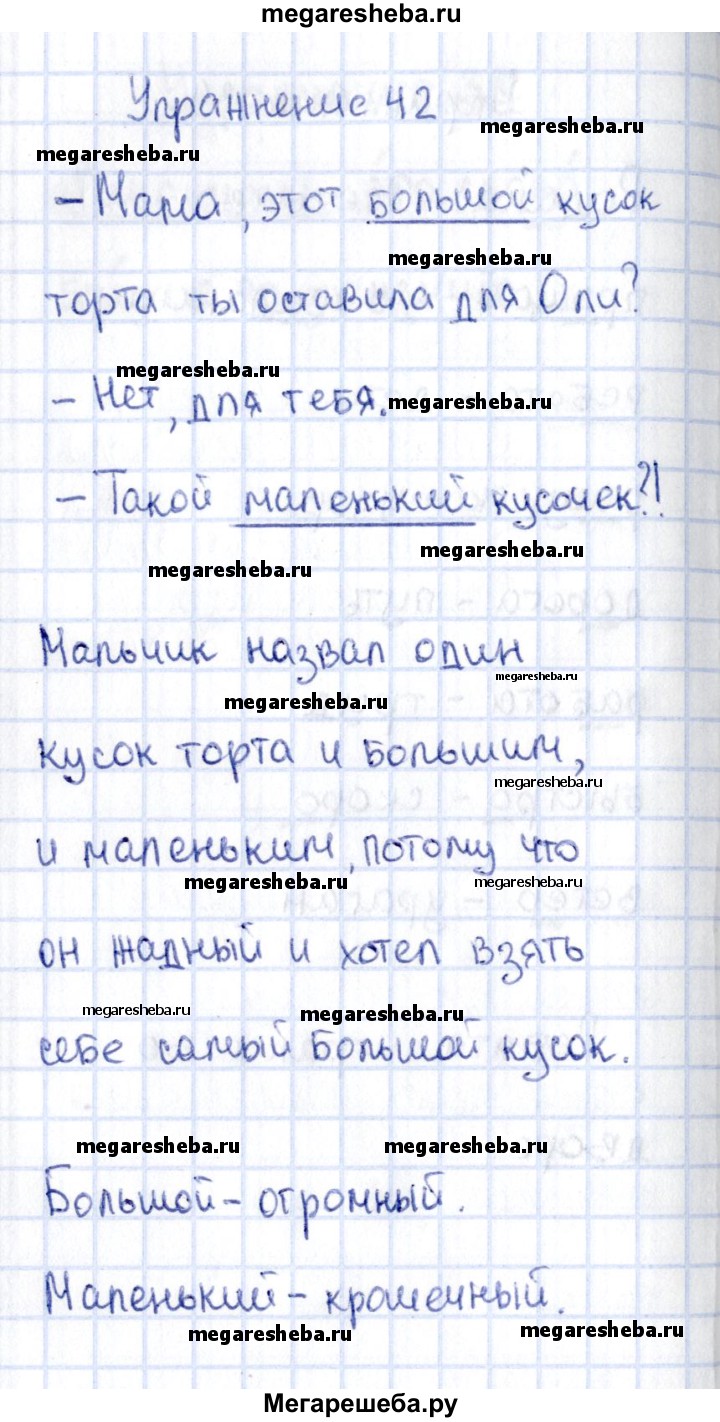 megaresheba.ru
Упражнение 42
megaresheba.ru
megaresheba.ru
- Мама, этот большой кусок
megaresheba.ru
торта ты оставила для Оли?
megaresheba.ru
- Нет, для тебя.
megaresheba.ru
- Такой маленький кусочек?!
megaresheba.ru
megaresheba.ru
Мальчик назвал один
megaresheba.ru
megaresheba.ru
кусок торта и большим,
megaresheba.ru
и маленьким, потому что
megaresheba.ru
megaresheba.ru
он жадный и хотел взять
megaresheba.ru
megaresheba.ru
себе самый большой кусок.
megaresheba.ru
megaresheba.ru
Большой - огромный.
Маленький - крошечный.
megaresheba.ru
megaresheba.ru
Мегарешеба.ру